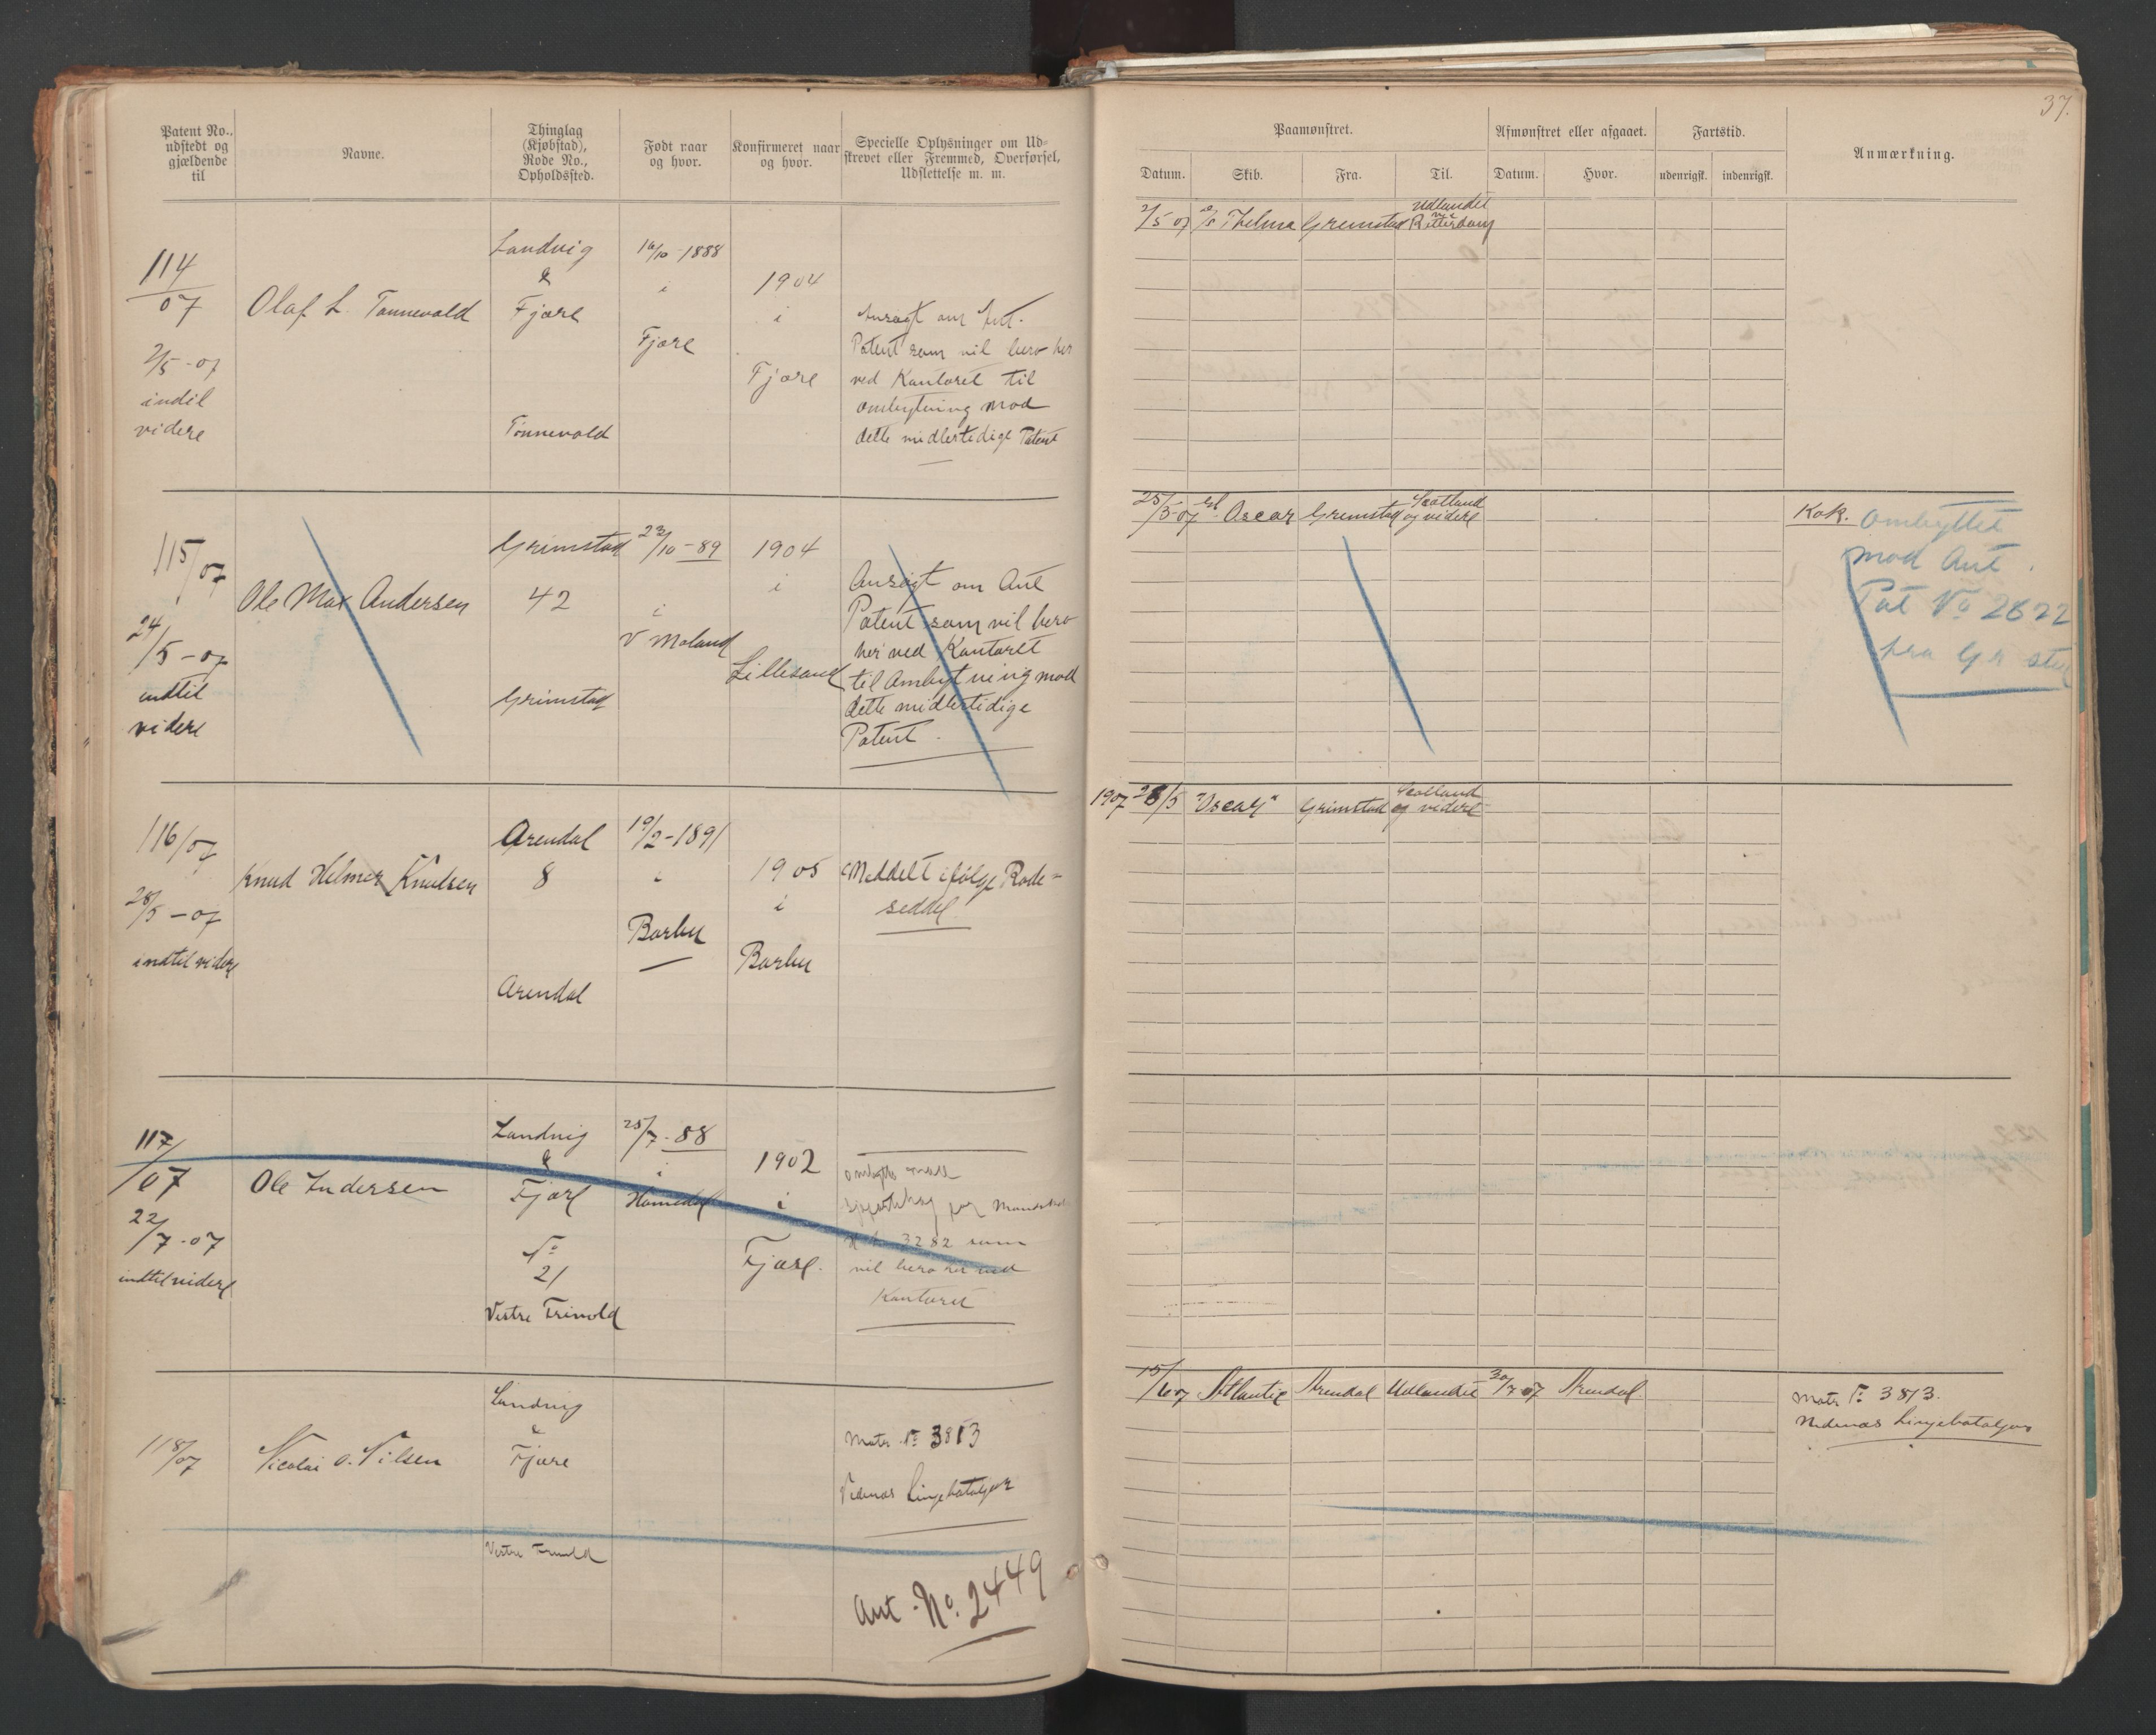 37.
Patent No., udstedt og gjældende til
Navne.
Thinglag (Kjøbstad), Rode No., Opholdssted.
Født naar og hvor.
Konfirmeret naar og hvor.
Specielle Oplysninger om Udskrevet eller Fremmed, Overførsel, Udslettelse m. m.
Paamønstret.
Afmønstret eller afgaaet.
Fartstid.
Anmærkning.
Datum.
Skib.
Fra.
Til.
Datum.
Hvor.
udenrigsk.
indenrigsk.
114/07
2/5-07
indtil
videre
Olaf L. Tønnevold
Landvig
&
Fjære
Tønnevold
16/10-1888
i
Fjære
1904
i
Fjære
Ansøgt om Ant.
Patent som vil bero her
ved Kontoret til
ombytning mod
dette midlertidige Patent
2/5 07 Thelma Grimstad Udlandet via Rotterdam
115/07
24/5-07
indtil
videre
Ole Max Andersen
Grimstad
42
Grimstad
23/10-89
i
V Moland
1904
i
Lillesand
Ansøgt om Ant
Patent som vil bero
her ved Kontoret
til Ombytning mod
dette midlertidige
Patent.
25/5-07 Oscar Grimstad Scotland og videre
Kok. Ombyttet
mod Ant.
Pat No 2622
fra Gr stad
116/07
28/5-07
indtil videre
Knud Helmer Knudsen
Arendal
8
Arendal
19/2-1891
i
Barbu
1905
i
Barbu
Meddelt ifølge Rode-
seddel
1907 28/5 "Oscar" Grimstad Scotland og videre
117/07
22/7-07
indtil videre
Ole Andersen
Landvig
&
Fjære
No
21
Vestre Trivold
25/7-88
i
Homedal
1902
i
Fjære.
3282 som
vil bero her ved
Kontoret
118/07
Nicolai O. Nilsen
Landvig
&
Fjære
Vestre Trivold
Matr No 3813
Nedenæs Linjebataljon
Ant. No. 2449
15/6 07 Atlantic Arendal Udlandet 30/7 07 Arendal
Matr No 3813.
Nedenæs Linjebataljon